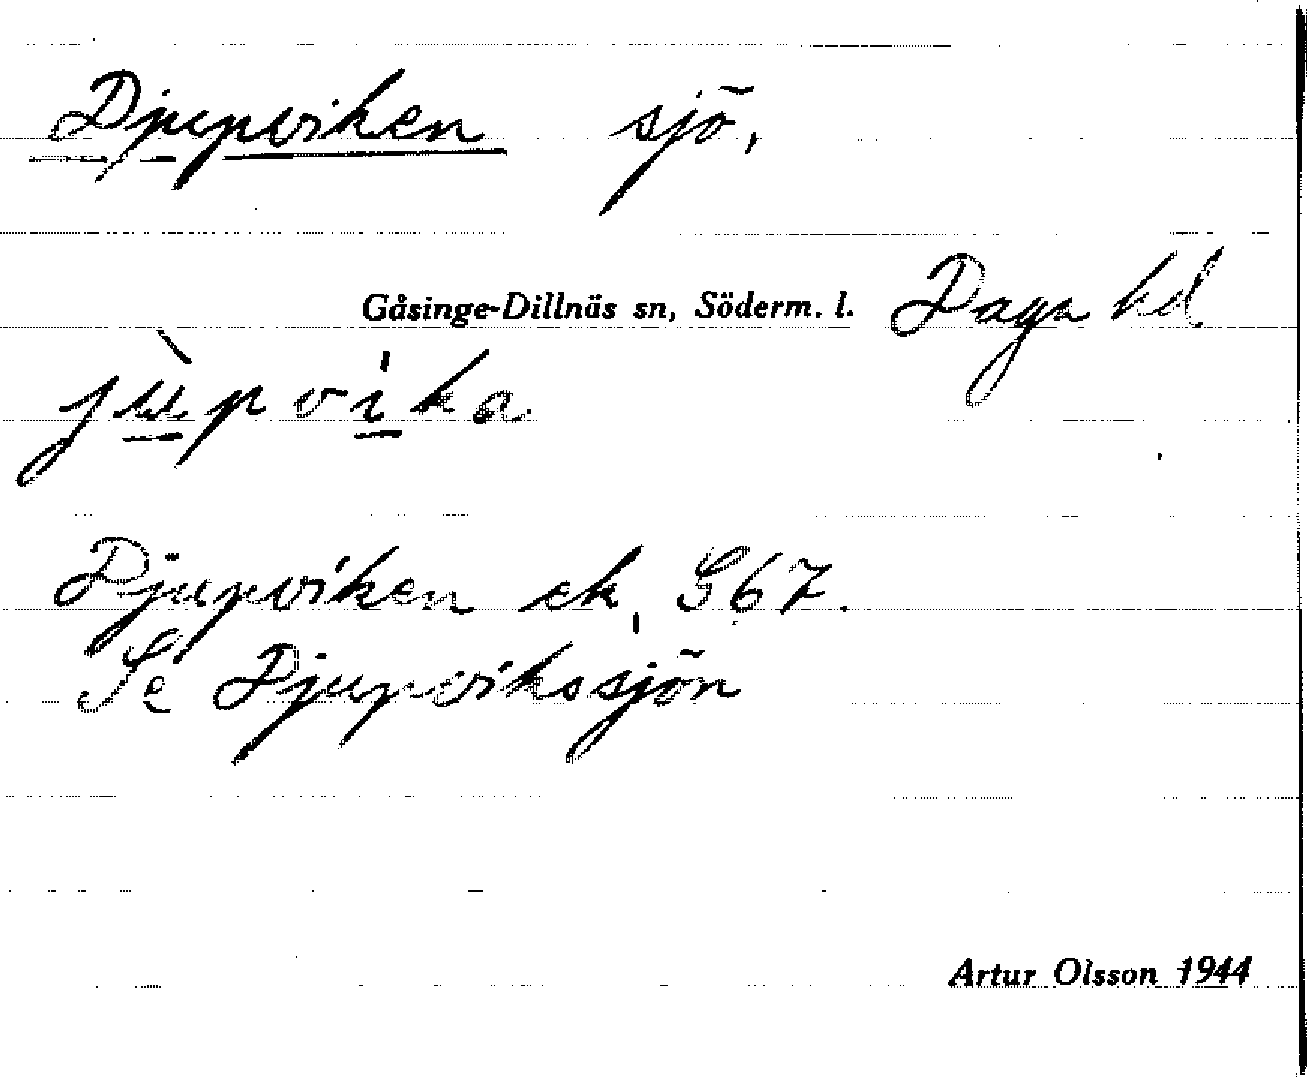 Djupviken sjö,
Gåsinge-Dillnäs sn, Söderm. l. Daga hd.
jùpvi̍ka
Djupviken ek, G67.
Se Djupvikssjön
Artur Olsson 1944